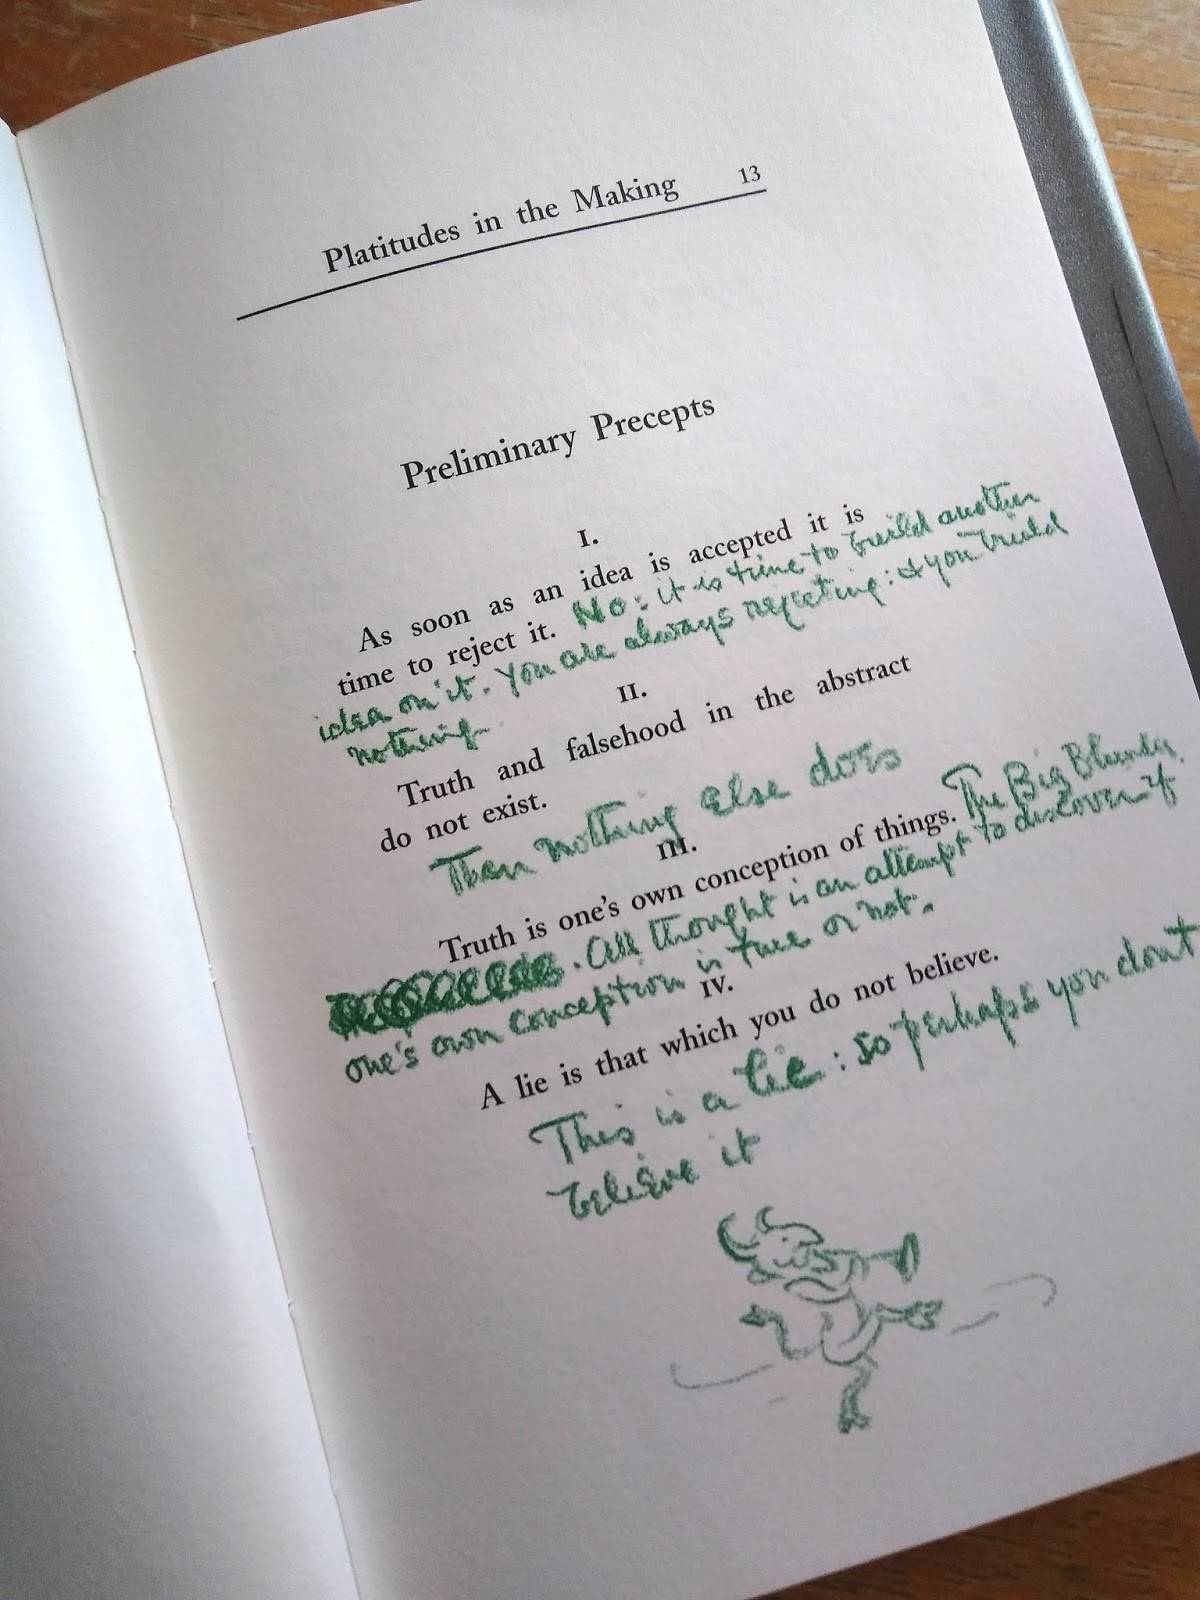 Platitudes in the Making 13
Preliminary Precepts
I.
As soon as an idea is accepted it is
time to reject it. No: it is time to build another
idea on it. You are always rejecting: & you build
nothing.
II.
Truth and falsehood in the abstract
do not exist.
Then nothing else does
III.
Truth is one's own conception of things. The Big Blunder
. All thought is an attempt to discover if
one's own conception is true or not.
IV.
A lie is that which you do not believe.
This is a lie: so perhaps you dont
believe it